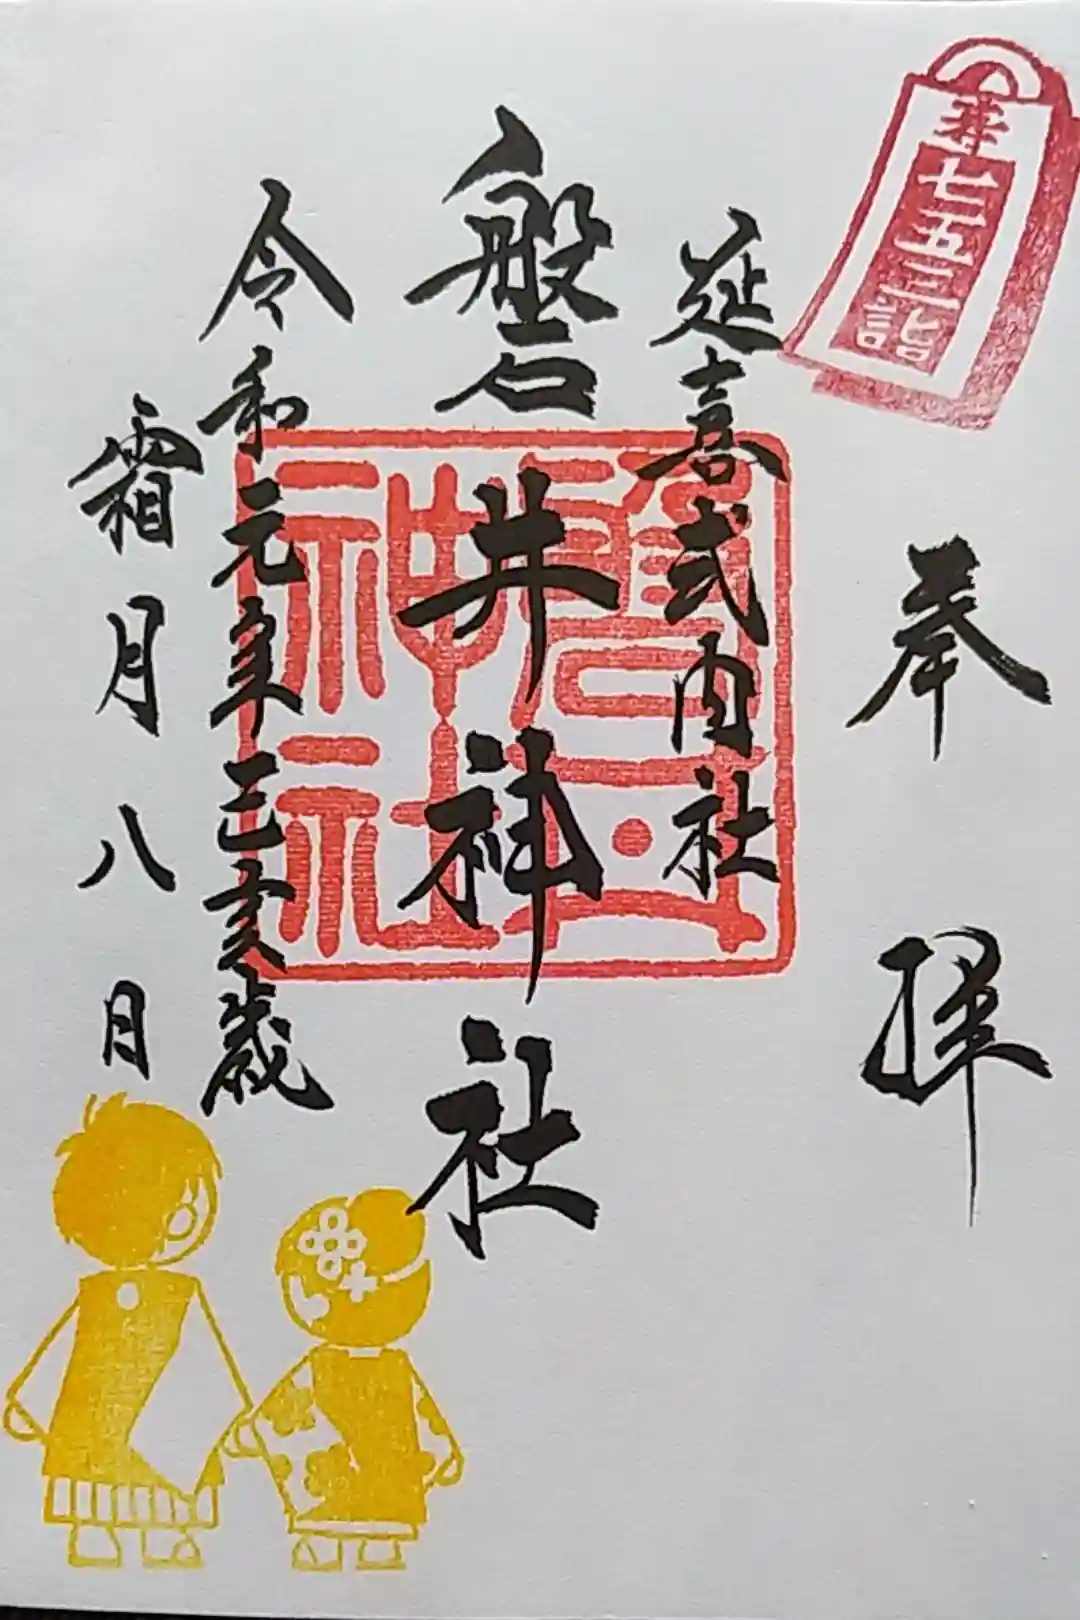 寿七五三詣
奉拝
延喜式内社
磐井神社
令和元年己亥歳
霜月八日
磐井神社